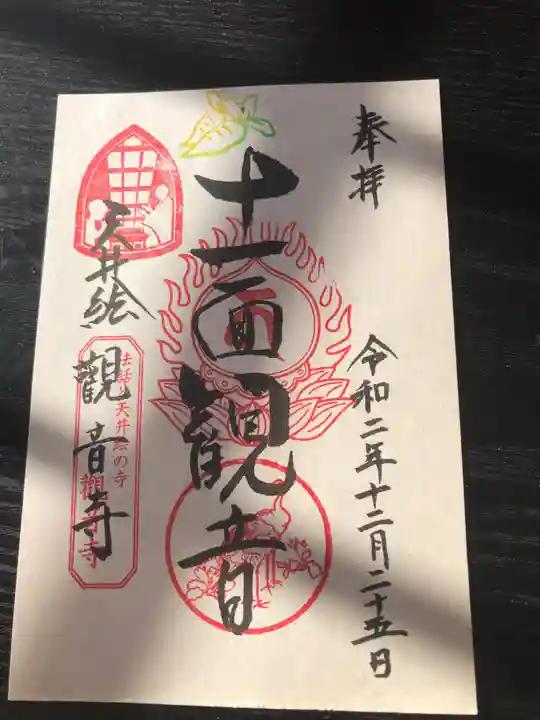 奉拝
令和二年十二月二十五日
十一面観音
天井絵
觀音寺
法話と天井絵の寺
觀音寺